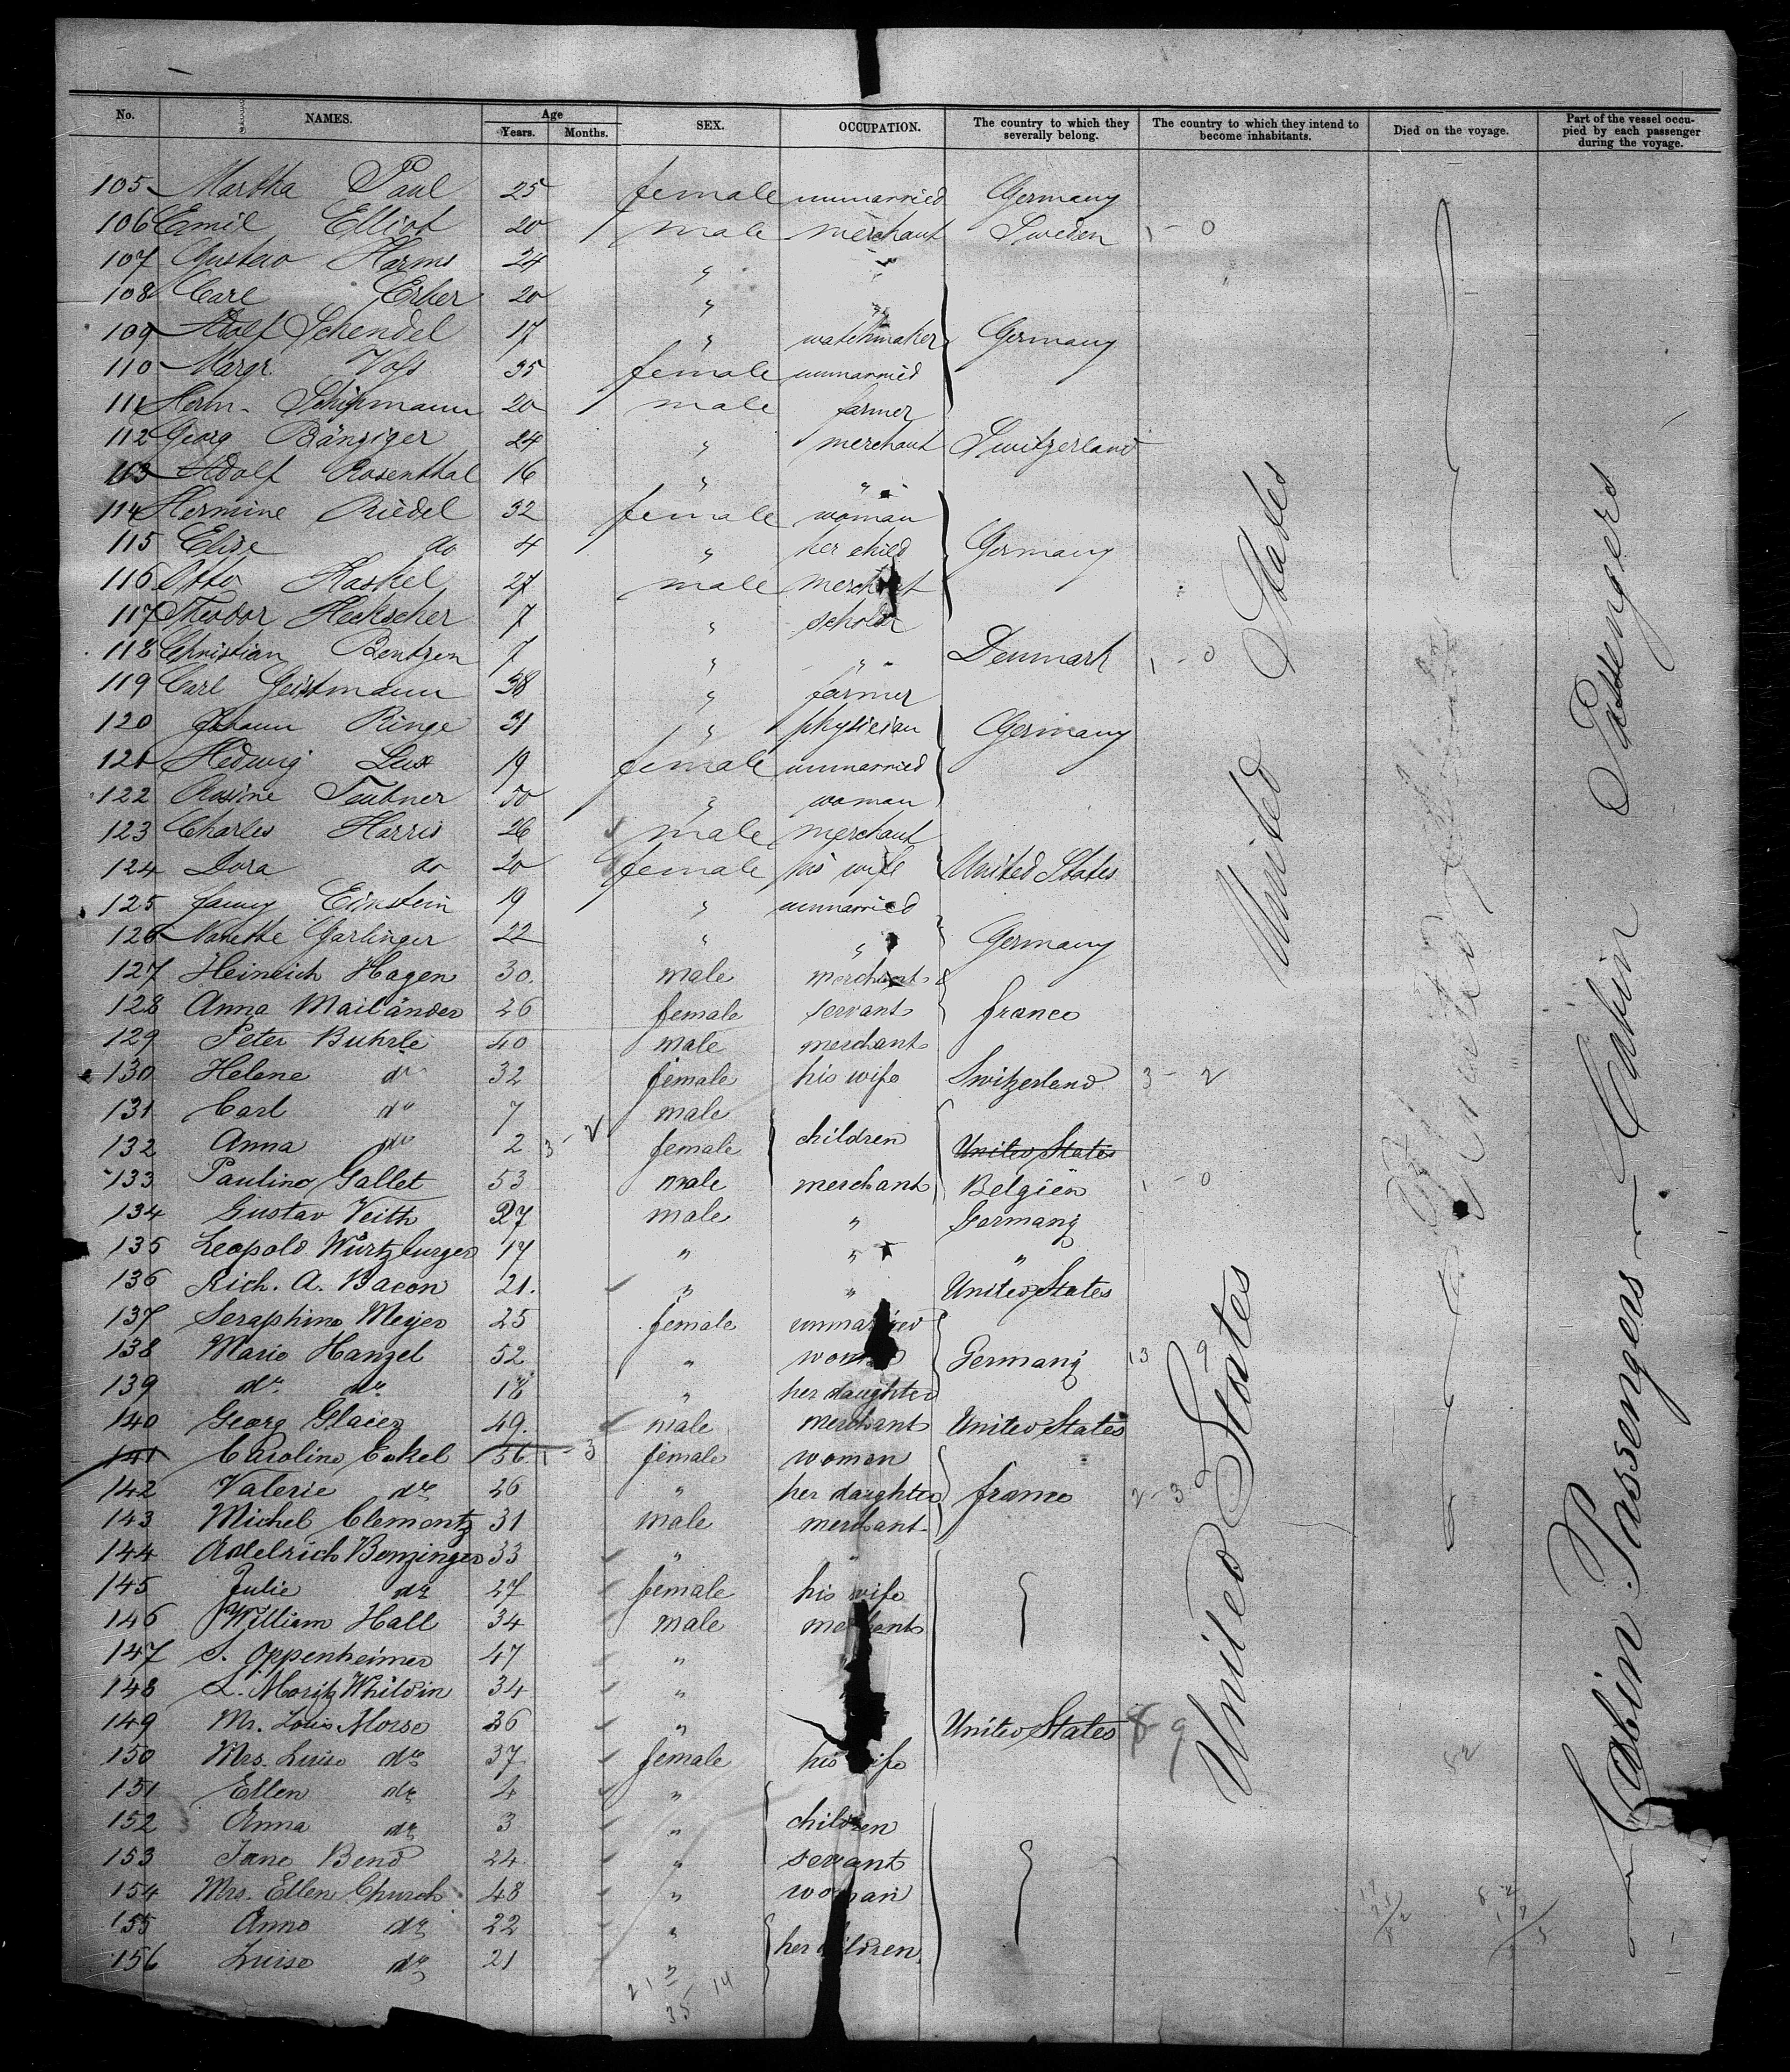 No. NAMES. Age Years. Months. SEX. OCCUPATION. The country to which they severally belong. The country to which they intend to become inhabitants. Died on the voyage. Part of the vessel occupied by each passenger during the voyage.
105 Martha Paul 25 female unmarried Germany
106 Emil Elliot 20 male merchant Sweden 1 - 0
107 Gustav Harms 24 " "
108 Carl Erber 20 " "
109 Adolf Schendel 17 " watchmaker Germany
110 Margr. Voss 35 female unmarried
111 Herm. Schipmann 20 male farmer
112 Georg Bänziger 24 " merchant Switzerland
113 Adolf Rosenthal 16 " "
114 Hermine Riedel 32 female woman
115 Elise do 4 " her child Germany
116 Otto Kaskel 27 male merchant
117 Theodor Heckscher 7 " scholar
118 Christian Bentzen 7 " " Denmark 1 - 0
119 Carl Geistmann 38 " farmer
120 Johann Ringe 31 " physician Germany
121 Hedwig Lux 19 female unmarried
122 Rosine Teubner 50 " woman
123 Charles Harris 26 male merchant
124 Dora do 20 female his wife United States
125 Fanny Einstein 19 " unmarried
126 Nanette Garlinger 22 " " Germany
127 Heinrich Hagen 30. male merchant
128 Anna Mailänder 26 female servant france
129 Peter Buhrle 40 male merchant
130 Helene do 32 female his wife Switzerland 3 - 2
131 Carl do 7 male
132 Anna do 2 female children United States
133 Pauline Gallet 53 male merchant Belgien 1 - 0
134 Gustav Veith 27 male " Germany
135 Leopold Würtzburger 17 " " "
136 Rich. A. Bacon 21. " " United States
137 Seraphine Meyer 25 female unmarried
138 Marie Hanzel 52 " woman Germany 13 9
139 do. do. 18 " her daughter
140 Georg Glaier 49. male merchant United States
141 Caroline Eckel 56 female woman
142 Valerie do 26 " her daughter france 2 - 3
143 Michel Clementz 31 male merchant
144 Adelrich Benzinger 33 " "
145 Julie do 27 female his wife
146 William Hall 34 male merchant
147 S. Oppenheimer 47 "
148 L. Moritz Whildin 34 "
149 Mr. Louis Morse 36 " United States 8 9
150 Mrs. Luise do 37 female his wife
151 Ellen do 4 "
152 Anna do 3 " children
153 Jane Bend 24 " servant
154 Mrs. Ellen Church 48 " woman
155 Anna do 22 "
156 Luise do 21 " her children.
35 14
United States
United States
Cabin Passengers
Cabin Passengers